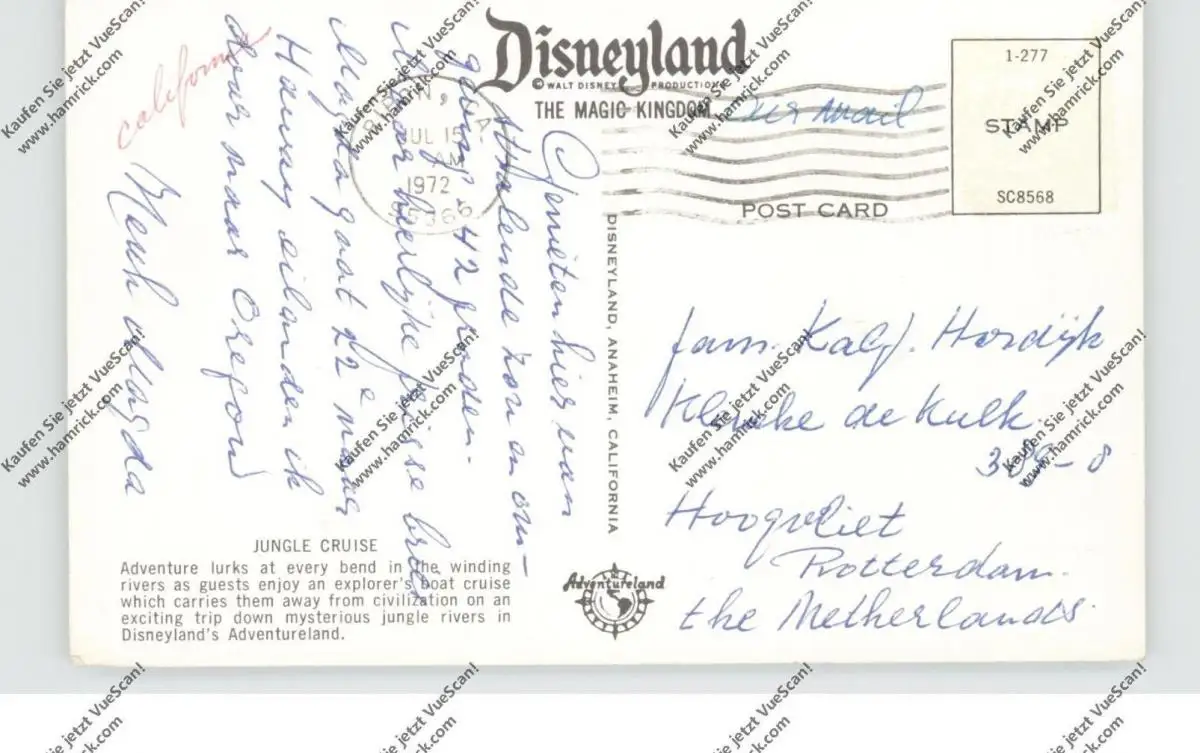 Disneyland
© WALT DISNEY PRODUCTIONS
THE MAGIC KINGDOM
Air Mail
1-277
STAMP
SC8568
POST CARD
JUL 15
AM
1972
california
Genieten hier van
stralende zon en om-
geving. 42 graden.
Maar heerlijke frisse bries
Magda gaat 22e naar
Hawaay eilanden ik
door naar Oregon
Magda
DISNEYLAND, ANAHEIM, CALIFORNIA
fam. Hordijk
de Kulk
Hoogvliet
Rotterdam.
the Netherlands.
JUNGLE CRUISE
Adventure lurks at every bend in the winding
rivers as guests enjoy an explorer's boat cruise
which carries them away from civilization on an
exciting trip down mysterious jungle rivers in
Disneyland's Adventureland.
Adventureland
Kaufen Sie jetzt VueScan!
www.hamrick.com